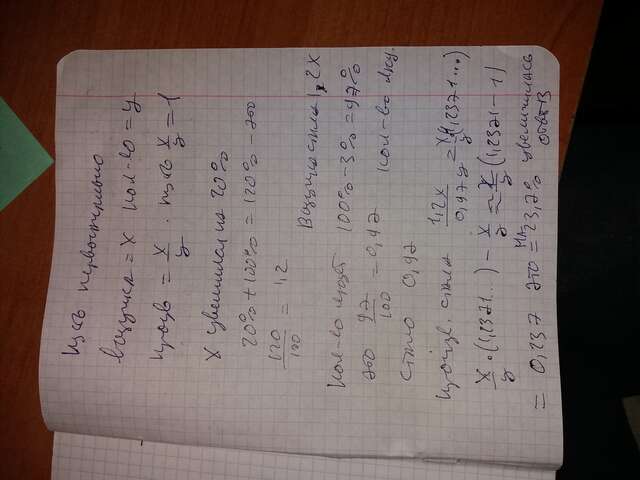 пусть первоначально
выручка = x кол-во = y
произв = x/y . пусть x/y = 1
x увеличилась на 20%
20% + 100% = 120% - это
120/100 = 1,2
Выручка стала 1,2x
Кол-во людей 100% - 3% = 97%
это 97/100 = 0,97 кол-во люд.
стало 0,97
произв. стала 1,2x/0,97y = x/y(1,2371...)
x/y · (1,2371...) - x/y ≈ x/y (1,2371 - 1)
= 0,237 это = на 23,7% увеличилась
ответ B